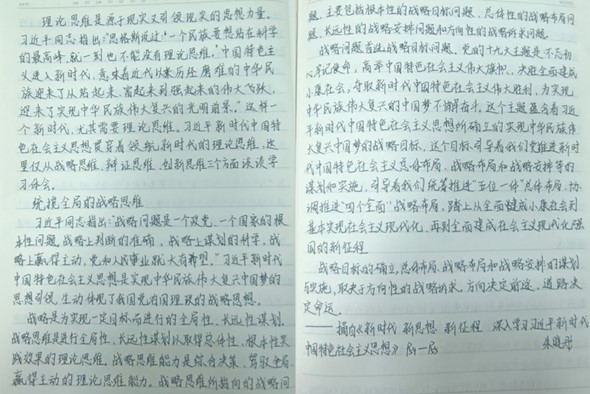 理论思维是源于现实又引领现实的思想力量。
习近平同志指出:“恩格斯说过:‘一个民族要想站在科学
的最高峰,就一刻也不能没有理论思维。’中国特色主
义进入新时代,意味着近代以来历经磨难的中华民
族迎来了从站起来、富起来到强起来的伟大飞跃,
迎来了实现中华民族伟大复兴的光明前景。”这样一
个新时代,尤其需要理论思维。习近平新时代中国特
色社会主义思想贯穿着领航新时代的理论思维,这
里仅从战略思维、辩证思维、创新思维三个方面谈谈学
习体会。
统揽全局的战略思维
习近平同志指出:“战略问题是一个政党、一个国家的根
本性问题。战略上判断的准确,战略上谋划的科学,战
略上赢得主动,党和人民事业就大有希望。”习近平新时代
中国特色社会主义思想是实现中华民族伟大复兴中国梦的
思想引领,生动体现了我国党治国理政的战略思想。
战略是为实现一定目标而进行的全局性、长远性谋划,
战略思维是进行全局性、长远性谋划以取得总体性、根本性实
践效果的理论思维。战略思维能力是综合决策、驾驭全局
赢得主动的理论思维能力。战略思维所指向的战略问
题,主要包括根本性的战略目标问题、总体性的战略布局问
题、长远性的战略安排问题和方向性的战略诉求问题。
战略问题首位战略目标问题。党的十九大主题是不忘初
心,牢记使命,高举中国特色社会主义伟大旗帜,决胜全面建成
小康社会,夺取新时代中国特色社会主义伟大胜利,为实现
中华民族伟大复兴的中国梦不懈奋斗。这个主题蕴含着习近
平新时代中国特色社会主义思想所确立的实现中华民族伟
大复兴中国梦的战略目标。这个目标,引导着我们党推进新时
代中国特色社会主义总体布局、战略布局和战略安排等的
谋划和实施,引导着我们统筹推进“五位一体”总体布局、协
调推进“四个全面”战略布局,踏上从全面建成小康社会到
基本实现社会主义现代化,再到全面建成社会主义现代化强
国的新征程。
战略目标的确立,总体布局、战略布局和战略安排的谋划
与实施,取决于方向性的战略诉求。方向决定前途,道路决
定命运。
——摘自《新时代 新思想 新征程 深入学习习近平新时代
中国特色社会主义思想》